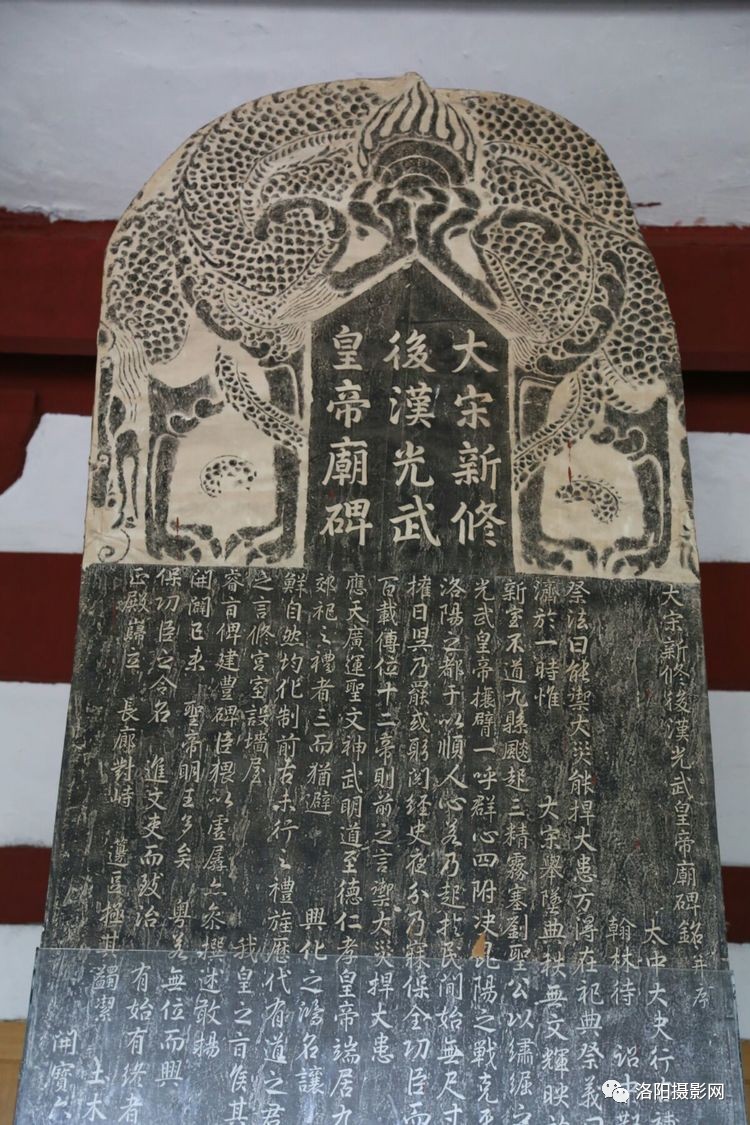 大宋新修
後漢光武
皇帝廟碑
大宋新修後漢光武皇帝廟碑銘并序
太中大夫行
翰林待 詔
祭法曰能禦大災能捍大患方得在祀典祭義
濟於一時惟 大宋舉墜典秩無文輝映
新室不道九縣飈起三精霧塞劉聖公以繡镼之
光武皇帝攘臂一呼群心四附決昆陽之戰克平
洛陽之都于以順人心若乃起於民間始無尺寸
擁日昃乃罷或躬閱經史夜分乃寐保全功臣而
百載傳位十二帝則前之言禦大災捍大患
應天廣運聖文神武明道至德仁孝皇帝端居九
郊祀之禮者三而猶避 興化之鴻名讓
鮮自然均化制前古未行之禮旌歷代有道之君
之言修宮室設墻屋 我皇之旨俟其
睿旨俾建豐碑臣猥以虛孱亦忝撰述敢揚
開闢已來 聖帝明王多矣 粤若無位而興
保功臣之令名 進文吏而致治 有始有終者
正殿巋立 長廊對峙 籩豆極其蠲潔 土木
開寶六
洛阳摄影网